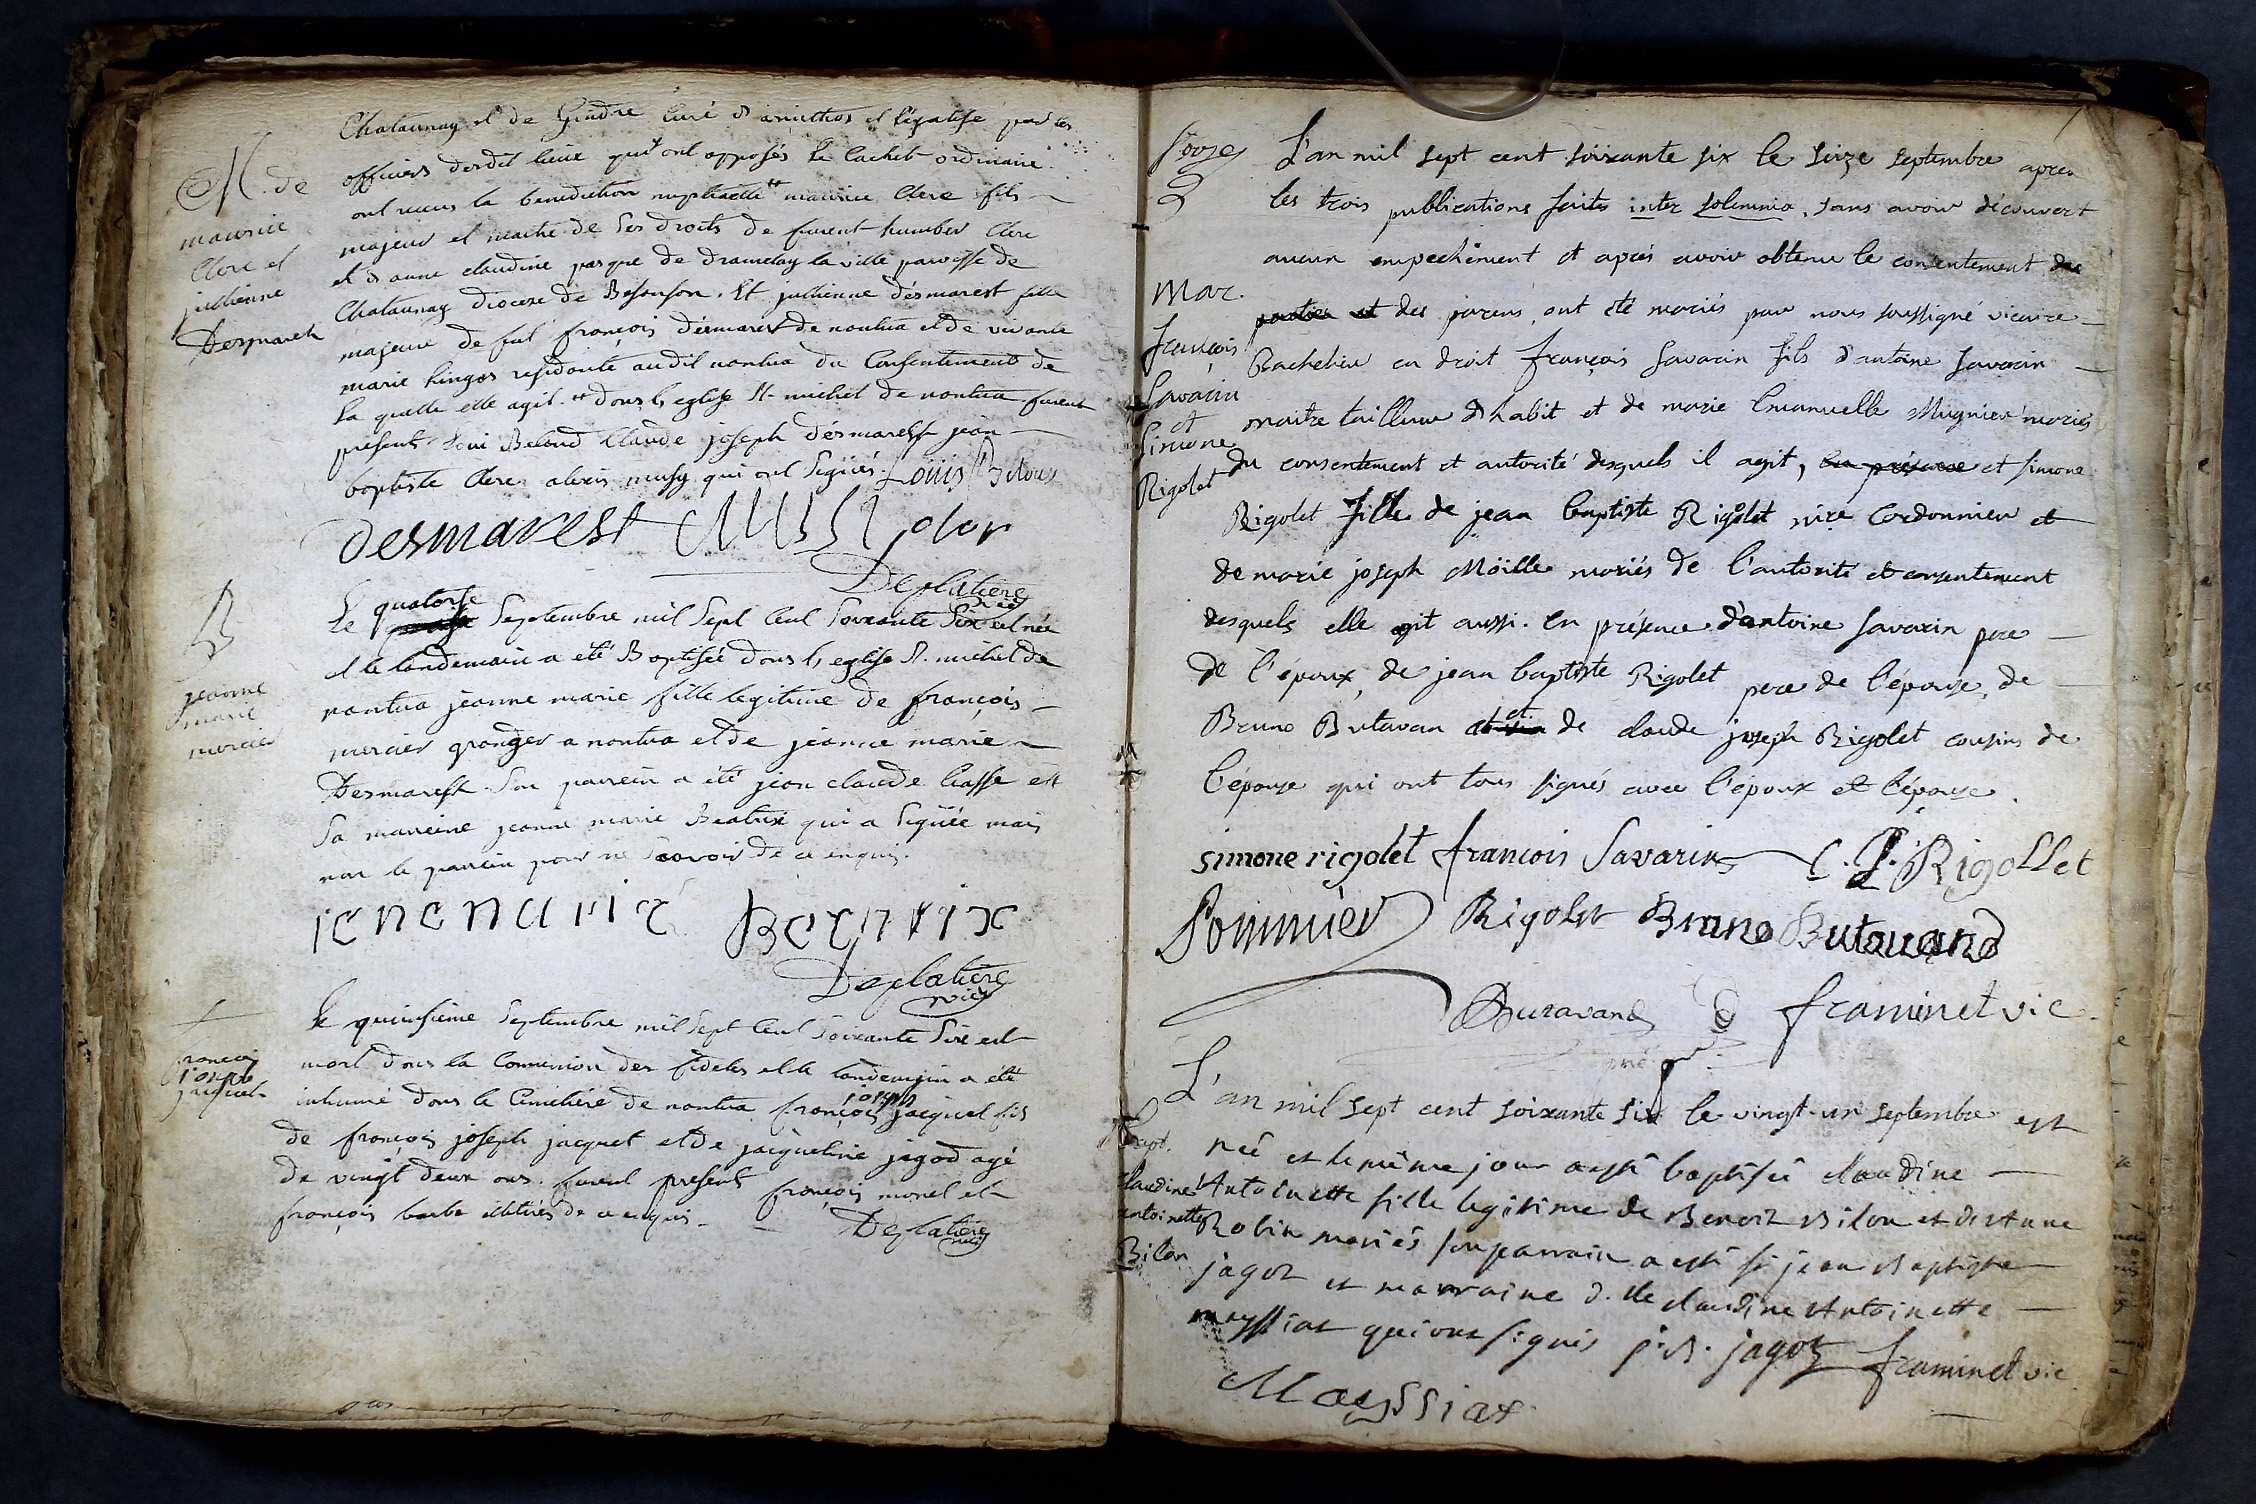 Chataunay et de Gindre curé d'arinthos et légalisé par les
officiers desdit lieux qui ont apposés le cachet ordinaire
ont recus la benediction nuptialle ** maurice Clerc fils
majeur et maitre de ses droits de furent humber Clerc
et d'anne claudine pasque de dramelay la ville paroisse de
Chataunay diocese de Besanson. Et jullienne désmarest fille
majeure de fut françois désmarest de nantua et de vivante
marie hingos residante audit nantua du Consentement de
la quelle elle agit. ** dans l'eglise st. michel de nantua furent
presents Claude joseph désmarest jean
baptiste Clerc alexis musy qui ont signés. Loüis
M. de
maurice
Clerc et
jullienne
Desmarest
desmarest
Deplatiere
vic
Le quatorse Septembre mil Sept Cent Soixante Six est née
et le landemain a été Baptisée dans l'eglise st. michel de
nantua jeanne marie fille legitime de françois
mercier granger a nantua et de jeanne marie
Desmarest. Son parrein a été jean claude liasse et
sa marreine jeanne marie Beatrix qui a signée mais
non le parrein pour ne savoir de ce enquis.
B
jeanne
marie
mercier
jenemarie Beatrix
Deplatiere
vic
Le quinsieme Septembre mil Sept Cent Soixante Six est
mort dans la Communion des fideles et le landemain a été
inhumé dans le Cimétiere de nantua françois joseph jacquet fils
de françois joseph jacquet et de jacqueline jagod agé
de vingt deux ans. furent présent françois morel et
françois barbe illitérés de ce enquis.
Deplatiere
vic
françois
joseph
jacquet
L'an mil sept cent soixante six le seize septembre apres
les trois publications faites inter solemnia, sans avoir découvert
aucun empechement et aprés avoir obtenu le consentement des
parties et des parens, ont été mariés par nous soussigné vicaire
Bachelier en droit françois Savarin fils d'antoine Savarin
maitre tailleur d'habit et de marie Emanuelle Mugnier mariés
du consentement et autorité desquels il agit, en présence et simone
Rigolet fille de jean baptiste Rigolet mire Cordonnier et
de marie joseph Möille mariés de l'autorité et consentement
desquels elle agit aussi. en présence d'antoine Savarin pere
de l'époux, de jean baptiste Rigolet pere de l'épouse, de
Bruno Butavan et de claude joseph Rigolet cousins de
l'épouse qui ont tous signés avec l'époux et l'épouse.
Mar.
françois
Savarin
et
Simone
Rigolet
simone rigolet françois Savarin C. J. Rigollet
Sommier Rigolet Bruno Butavand
Butavand framinet vic.
L'an mil sept cent soixante six le vingt-un septembre est
née et le même jour a esté baptisée claudine
Antoinette fille legitime de Benoit Bilon et d'Anne
Robin mariés son parrain a esté sr jean Baptiste
jagot et marraine d.lle claudine Antoinette
mayssiat qui ont signés j.B. jagot framinet vic
Bapt.
claudine
antoinette
Bilon
Mayssiat